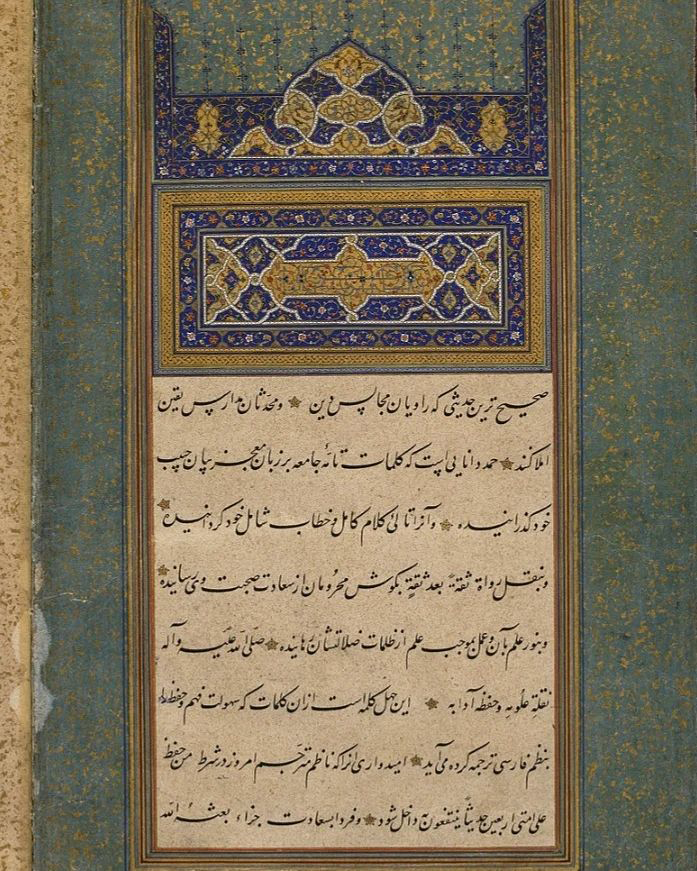 صحیح ترین حدیثی که راویان مجالس دین و محدثان مدارس یقین
املا کنند حمد دانایی است که کلمات تامّهٔ جامعه بر زبان معجز بیان حبیب
خود گذرانیده و آنرا تالی کلام کامل و خطاب شامل خود گردانیده
و بنقل رواة ثقةً بعد ثقةٍ بگوش محرومان از سعادت صحبت وی رسانیده
و بنور علم بآن و عمل بموجب علم از ظلمات ضلالتشان رهانیده صلی الله علیه و آله
نقلة علومه و حفظة آدابه این چهل کلمه است ازان کلمات که سهولت فهم و حفظ را
بنظم فارسی ترجمه کرده می آید امیدواری آنکه ناظم مترجم امروز در شرط من حفظ
علی امتی اربعین حدیثاً ینتفعون به داخل شود و فردا بسعادت جزاء بعثه الله